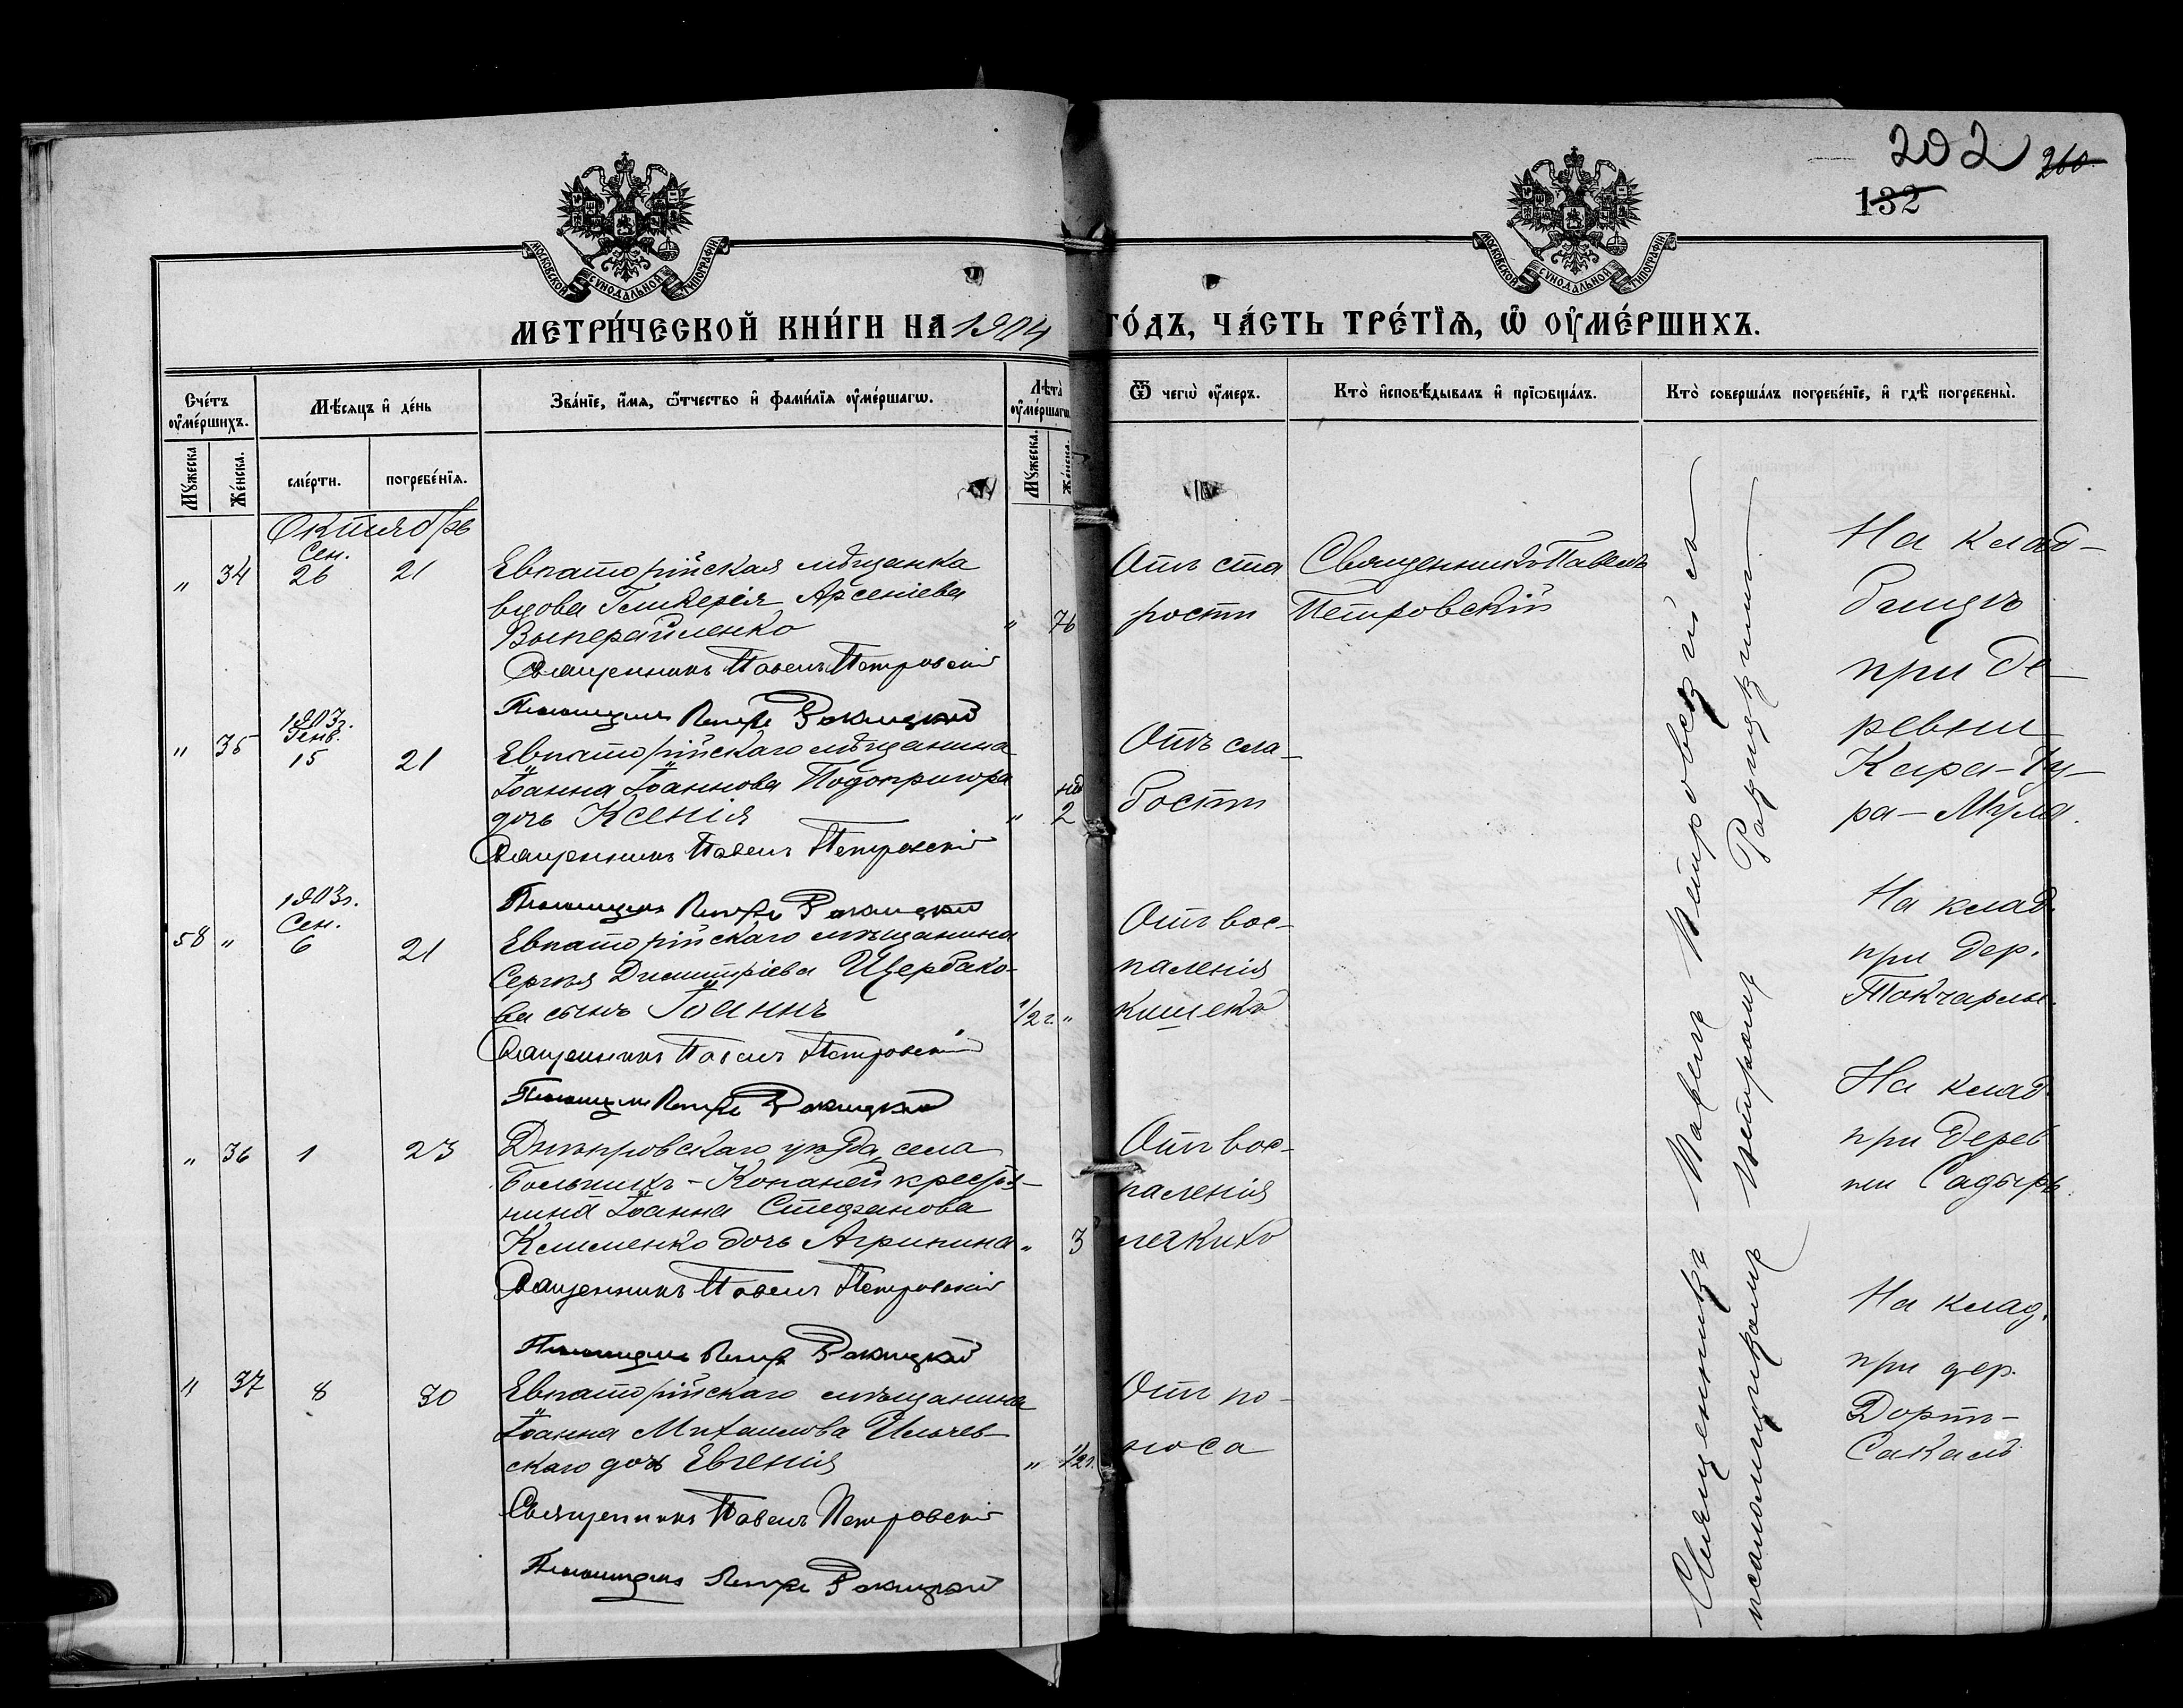 202 260
132
МОСКОВСКОЙ СѴНОДАЛЬНОЙ ТИПОГРАФІИ
МОСКОВСКОЙ СѴНОДАЛЬНОЙ ТИПОГРАФІИ
МЕТРИ́ЧЕСКОЙ КНИ́ГИ НА 1904 ГО́ДЪ, ЧА́СТЬ ТРЕ́ТЇѦ, Ѡ҆ ОУ҆МЕ́РШИХЪ.
Сче́тъ оу҆ме́ршихъ.
Мѣ́сяцъ и҆ де́нь
Зва́нїе, и҆́мя, ѻ҆́тчество и҆ фами́лїя оу҆ме́ршагѡ.
Лѣ́та оу҆ме́ршагѡ.
Ѿ чегѡ̀ оу҆́меръ.
Кто̀ и҆сповѣ́дывалъ и҆ прїѡбща́лъ.
Кто̀ соверша́лъ погребе́нїе, и҆ гдѣ̀ погребены̀.
Му́жеска
Же́нска.
сме́рти.
погребе́нїя.
Му́жеска.
Же́нска.
Октябрь
Сен.
" 34 26 21 Евпаторійская мѣщанка
вдова Гликерія Арсеніева
" 76
Священникъ Павелъ Петровскій
Псаломщикъ Петръ Ракицкій
Отъ ста
рости
Священникъ Павелъ
Петровскій
На клад-
бищѣ
при де-
ревни
Кара-Ту-
ра-Мула.
1903г.
Генв.
" 35 15 21 Евпаторійскаго мѣщанина
Іоанна Іоаннова Подопригора
дочь Ксенія " нед 2
Священникъ Павелъ Петровскій
Псаломщикъ Петръ Ракицкій
Отъ сла-
бости
1903г.
Сен.
58 " 6 21 Евпаторійскаго мѣщанина
Сергѣя Димитріева Щербако-
ва сынъ Іоаннъ 1/2 г. "
Священникъ Павелъ Петровскій
Псаломщикъ Петръ Ракицкій
Отъ вос-
паленія
кишекъ
На клад.
при дер.
Токчарлы.
" 36 1 23 Днѣпровскаго уѣзда, села
Большихъ-Копаней крестья-
нина Іоанна Стефанова
Клименко дочь Агрипина " 3
Священникъ Павелъ Петровскій
Псаломщикъ Петръ Ракицкій
Отъ вос-
паленія
легкихъ
На клад.
при дерев
ни Садыръ
" 37 8 30 Евпаторійскаго мѣщанина
Іоанна Михаилова Ильчев-
скаго дочь Евгенія " 1/2 г.
Священникъ Павелъ Петровскій
Псаломщикъ Петръ Ракицкій
Отъ по-
носа
На клад.
при дер.
Дортъ-
Сакалъ
Священникъ Павелъ Петровскій съ
псаломщикомъ Петромъ Ракицкимъ